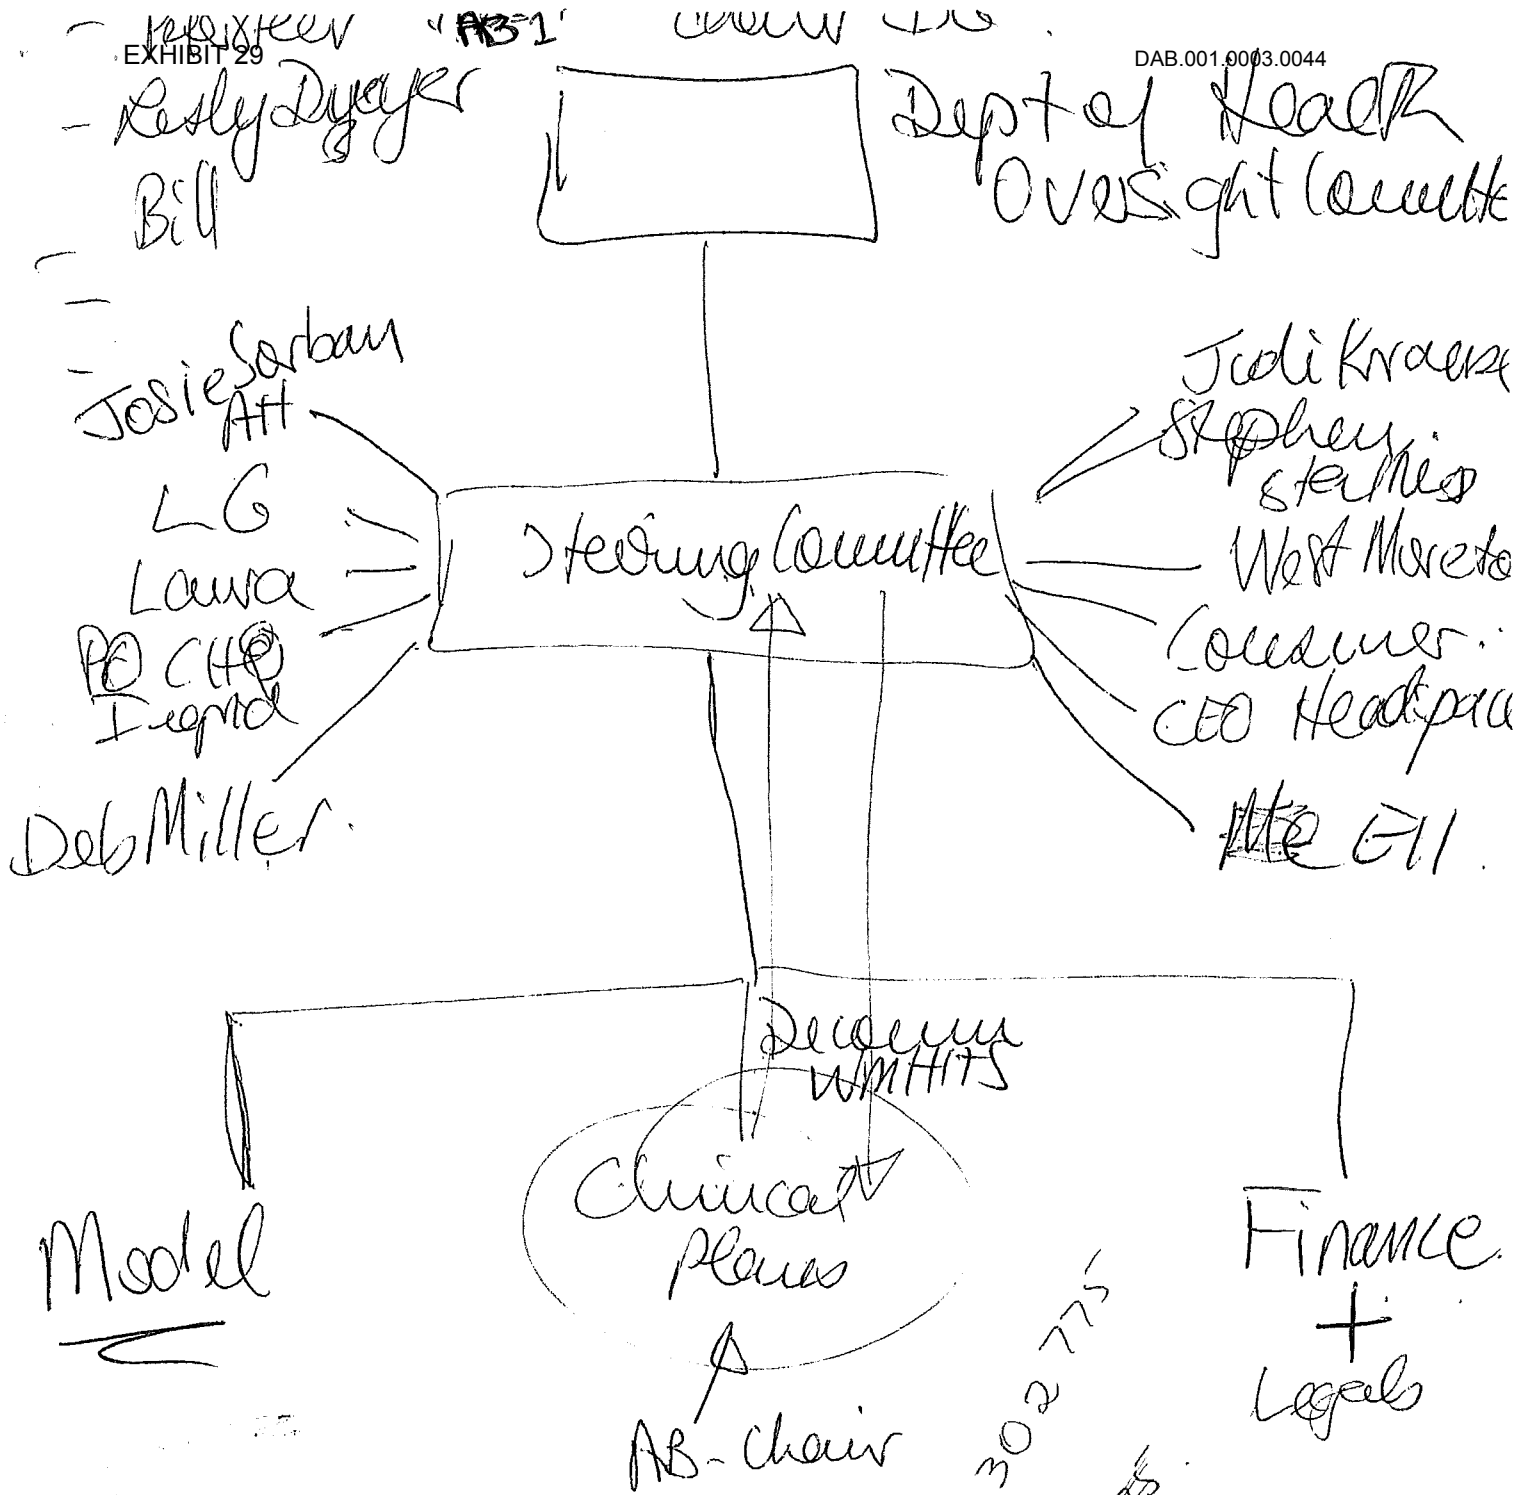 "AB-1"
EXHIBIT 29
DAB.001.0003.0044
- Lesly Dwyer
Bill
Dept of Health
Oversight Committe
Josie Sorban
AH
LG
Laura
PO CHQ
Ingrid
Deb Miller.
Steering Committee
Judi Krause
Stephen
Stathis
West Moreto
Consumer.
CEO Headspace
EH.
Decomm
WMHHS
Model
Clinical
Plans
Finance
+
Legals
AB-Chair
302775